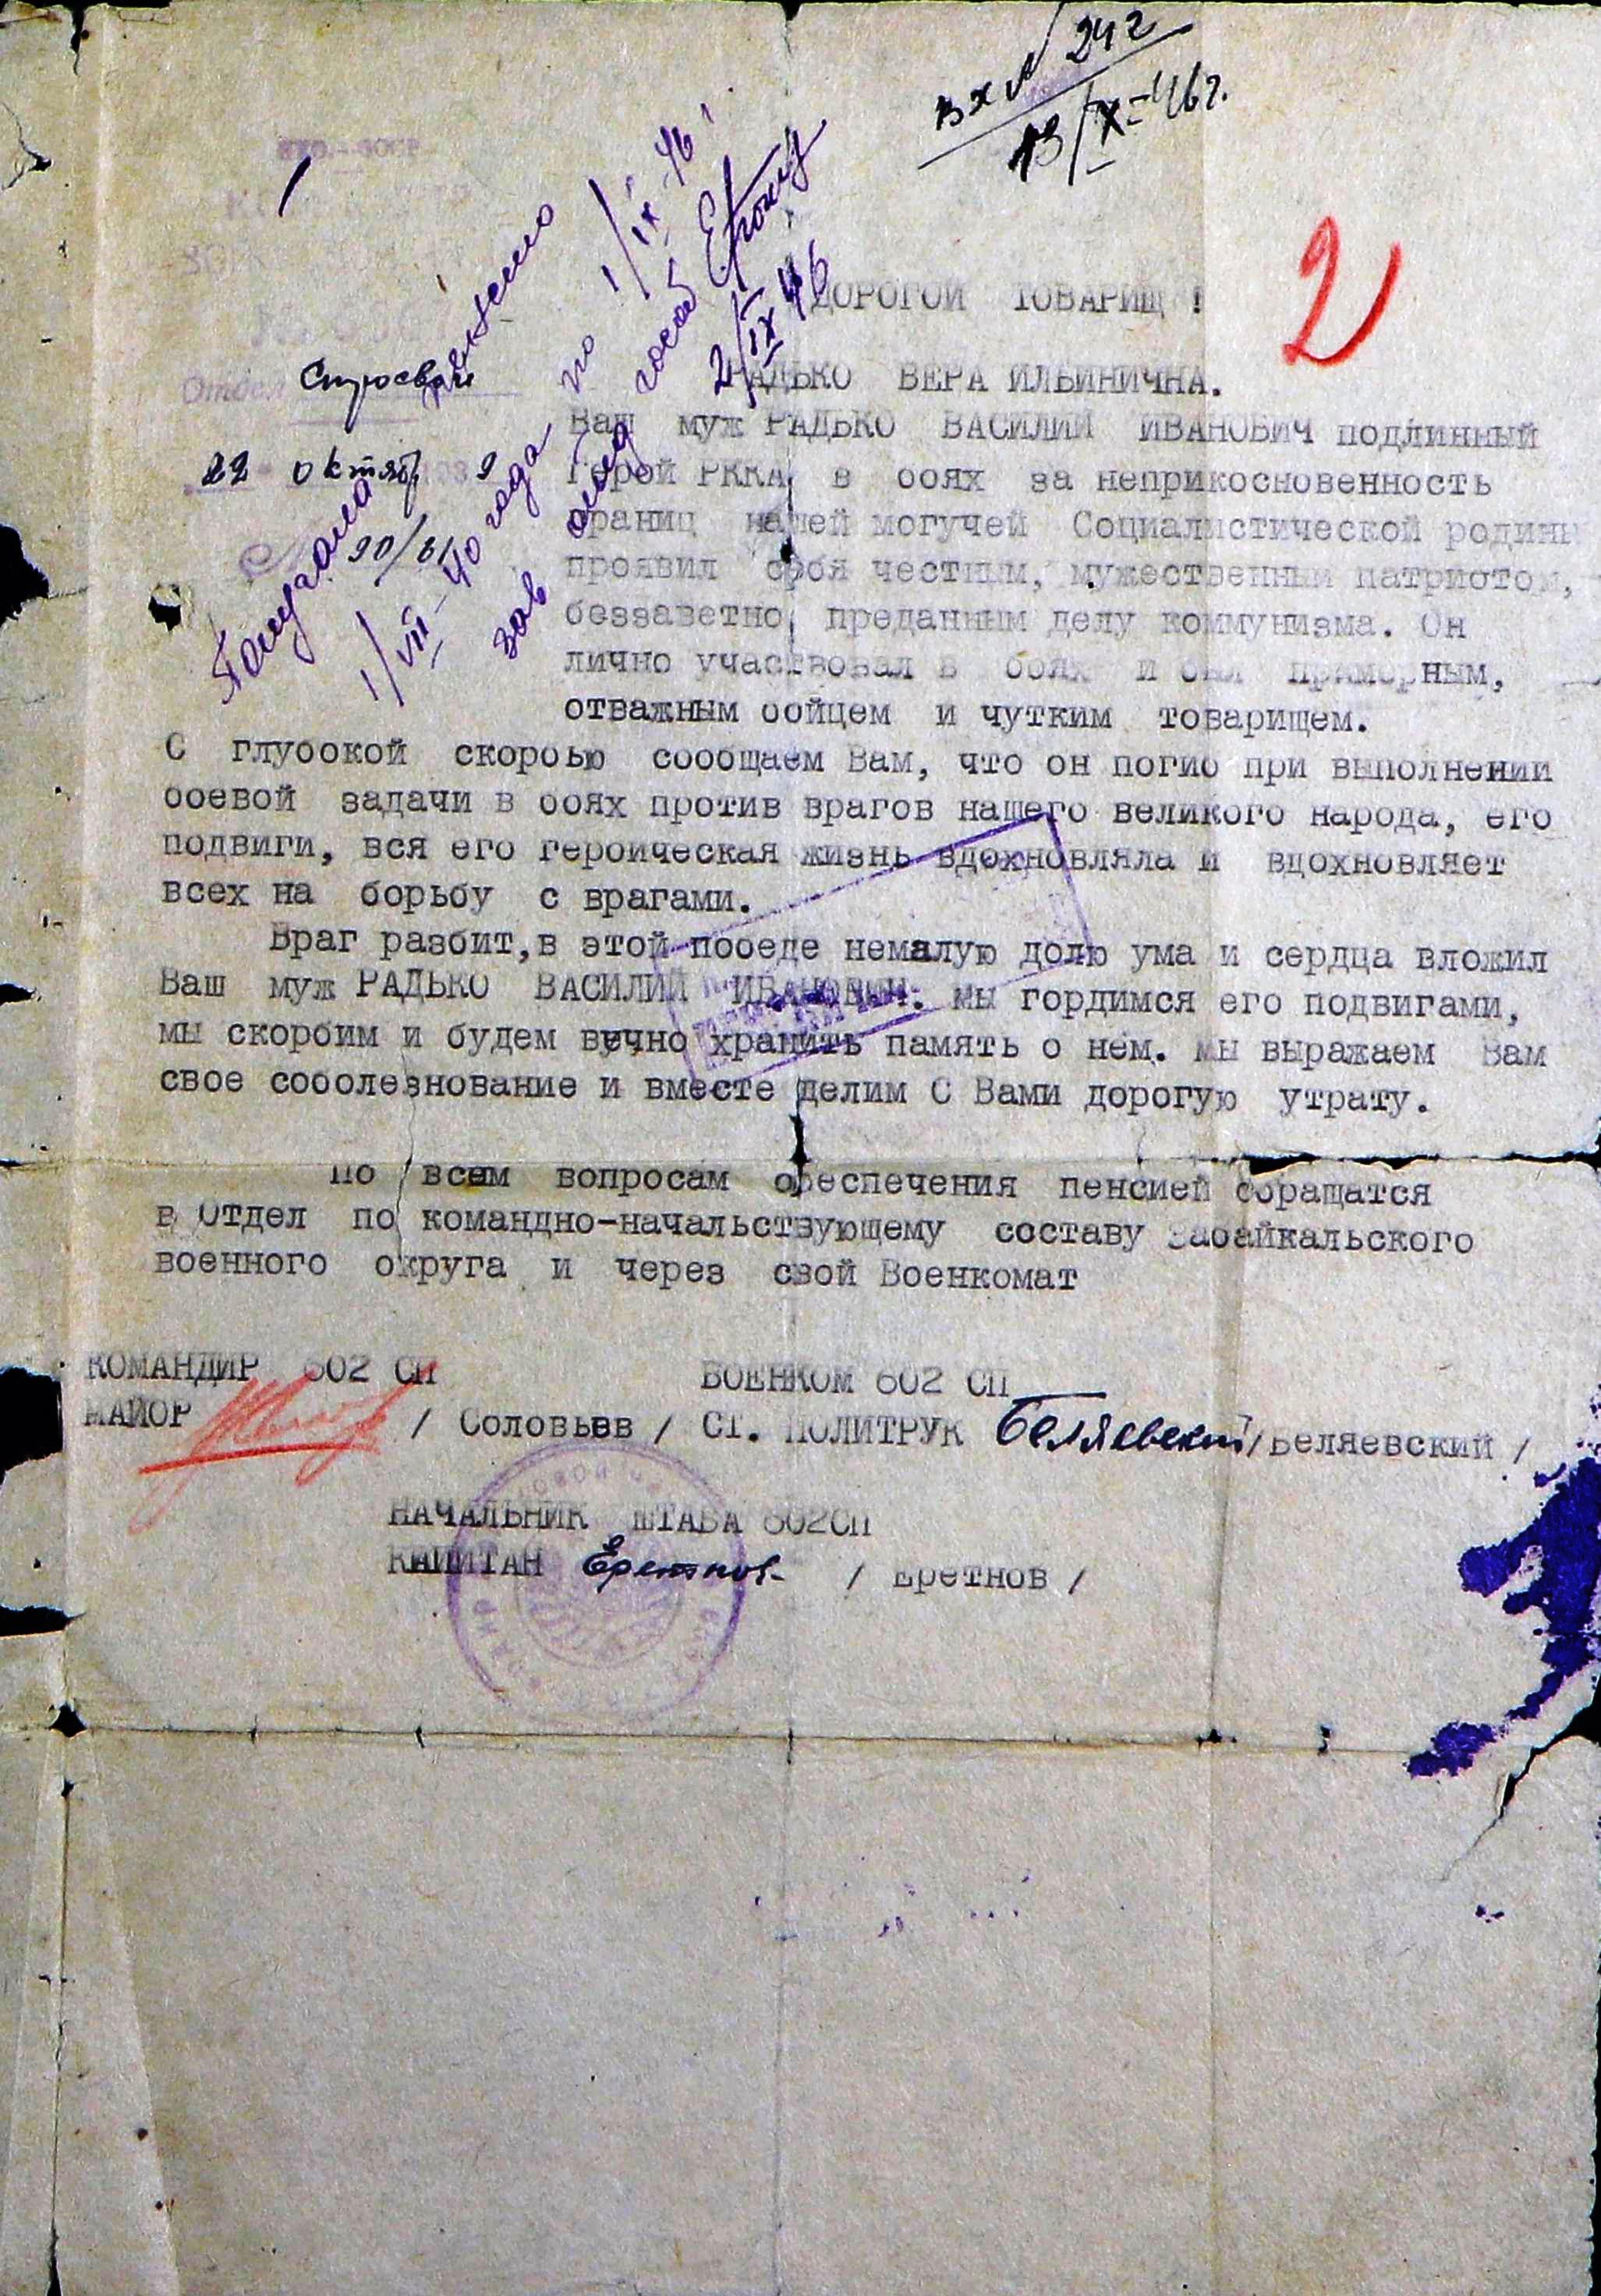 Вх № 242
13/X-46г.
2
НКО-СССР
Отдел Строевой
22 октябр 9
90/61
Получала пенсию
1/VII-40 года по 1/IX-46
зав отд гособ
2/IX 46
ДОРОГОЙ ТОВАРИЩ !
РАДЬКО ВЕРА ИЛЬИНИЧНА.
Ваш муж РАДЬКО ВАСИЛИЙ ИВАНОВИЧ подлинный
герой РККА, в боях за неприкосновенность
границ нашей могучей Социалистической родины
проявил себя честным, мужественным патриотом,
беззаветно преданным делу коммунизма. Он
лично участвовал в боях и был примерным,
отважным бойцем и чутким товарищем.
С глубокой скорбью сообщаем Вам, что он погиб при выполнении
боевой задачи в боях против врагов нашего великого народа, его
подвиги, вся его героическая жизнь вдохновляла и вдохновляет
всех на борьбу с врагами.
Враг разбит, в этой победе немалую долю ума и сердца вложил
Ваш муж РАДЬКО ВАСИЛИЙ ИВАНОВИЧ. Мы гордимся его подвигами,
мы скорбим и будем вечно хранить память о нем. Мы выражаем Вам
свое соболезнование и вместе делим С Вами дорогую утрату.
По всем вопросам обеспечения пенсией обращатся
в Отдел по командно-начальствующему составу Забайкальского
военного округа и через свой Военкомат
КОМАНДИР 602 СП ВОЕНКОМ 602 СП
МАЙОР / Соловьев / СТ. ПОЛИТРУК Беляевский / Беляевский /
НАЧАЛЬНИК ШТАБА 602СП
КАПИТАН Еретнов / Еретнов /